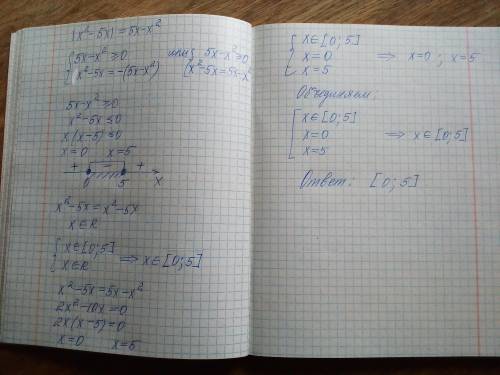 |x²-5x|=5x-x²
{ 5x-x²≥0 или { 5x-x²≥0
x²-5x=-(5x-x²) x²-5x=5x-x²
5x-x²≥0
x²-5x≤0
x(x-5)≤0
x=0 x=5
+ - +
0 5 x
x²-5x=x²-5x
x∈R
{ x∈[0;5]
x∈R ⇒ x∈[0;5]
x²-5x=5x-x²
2x²-10x=0
2x(x-5)=0
x=0 x=5
{ x∈[0;5]
x=0 ⇒ x=0; x=5
x=5
Объединяем:
[ x∈[0;5]
x=0 ⇒ x∈[0;5]
x=5
Ответ: [0;5]